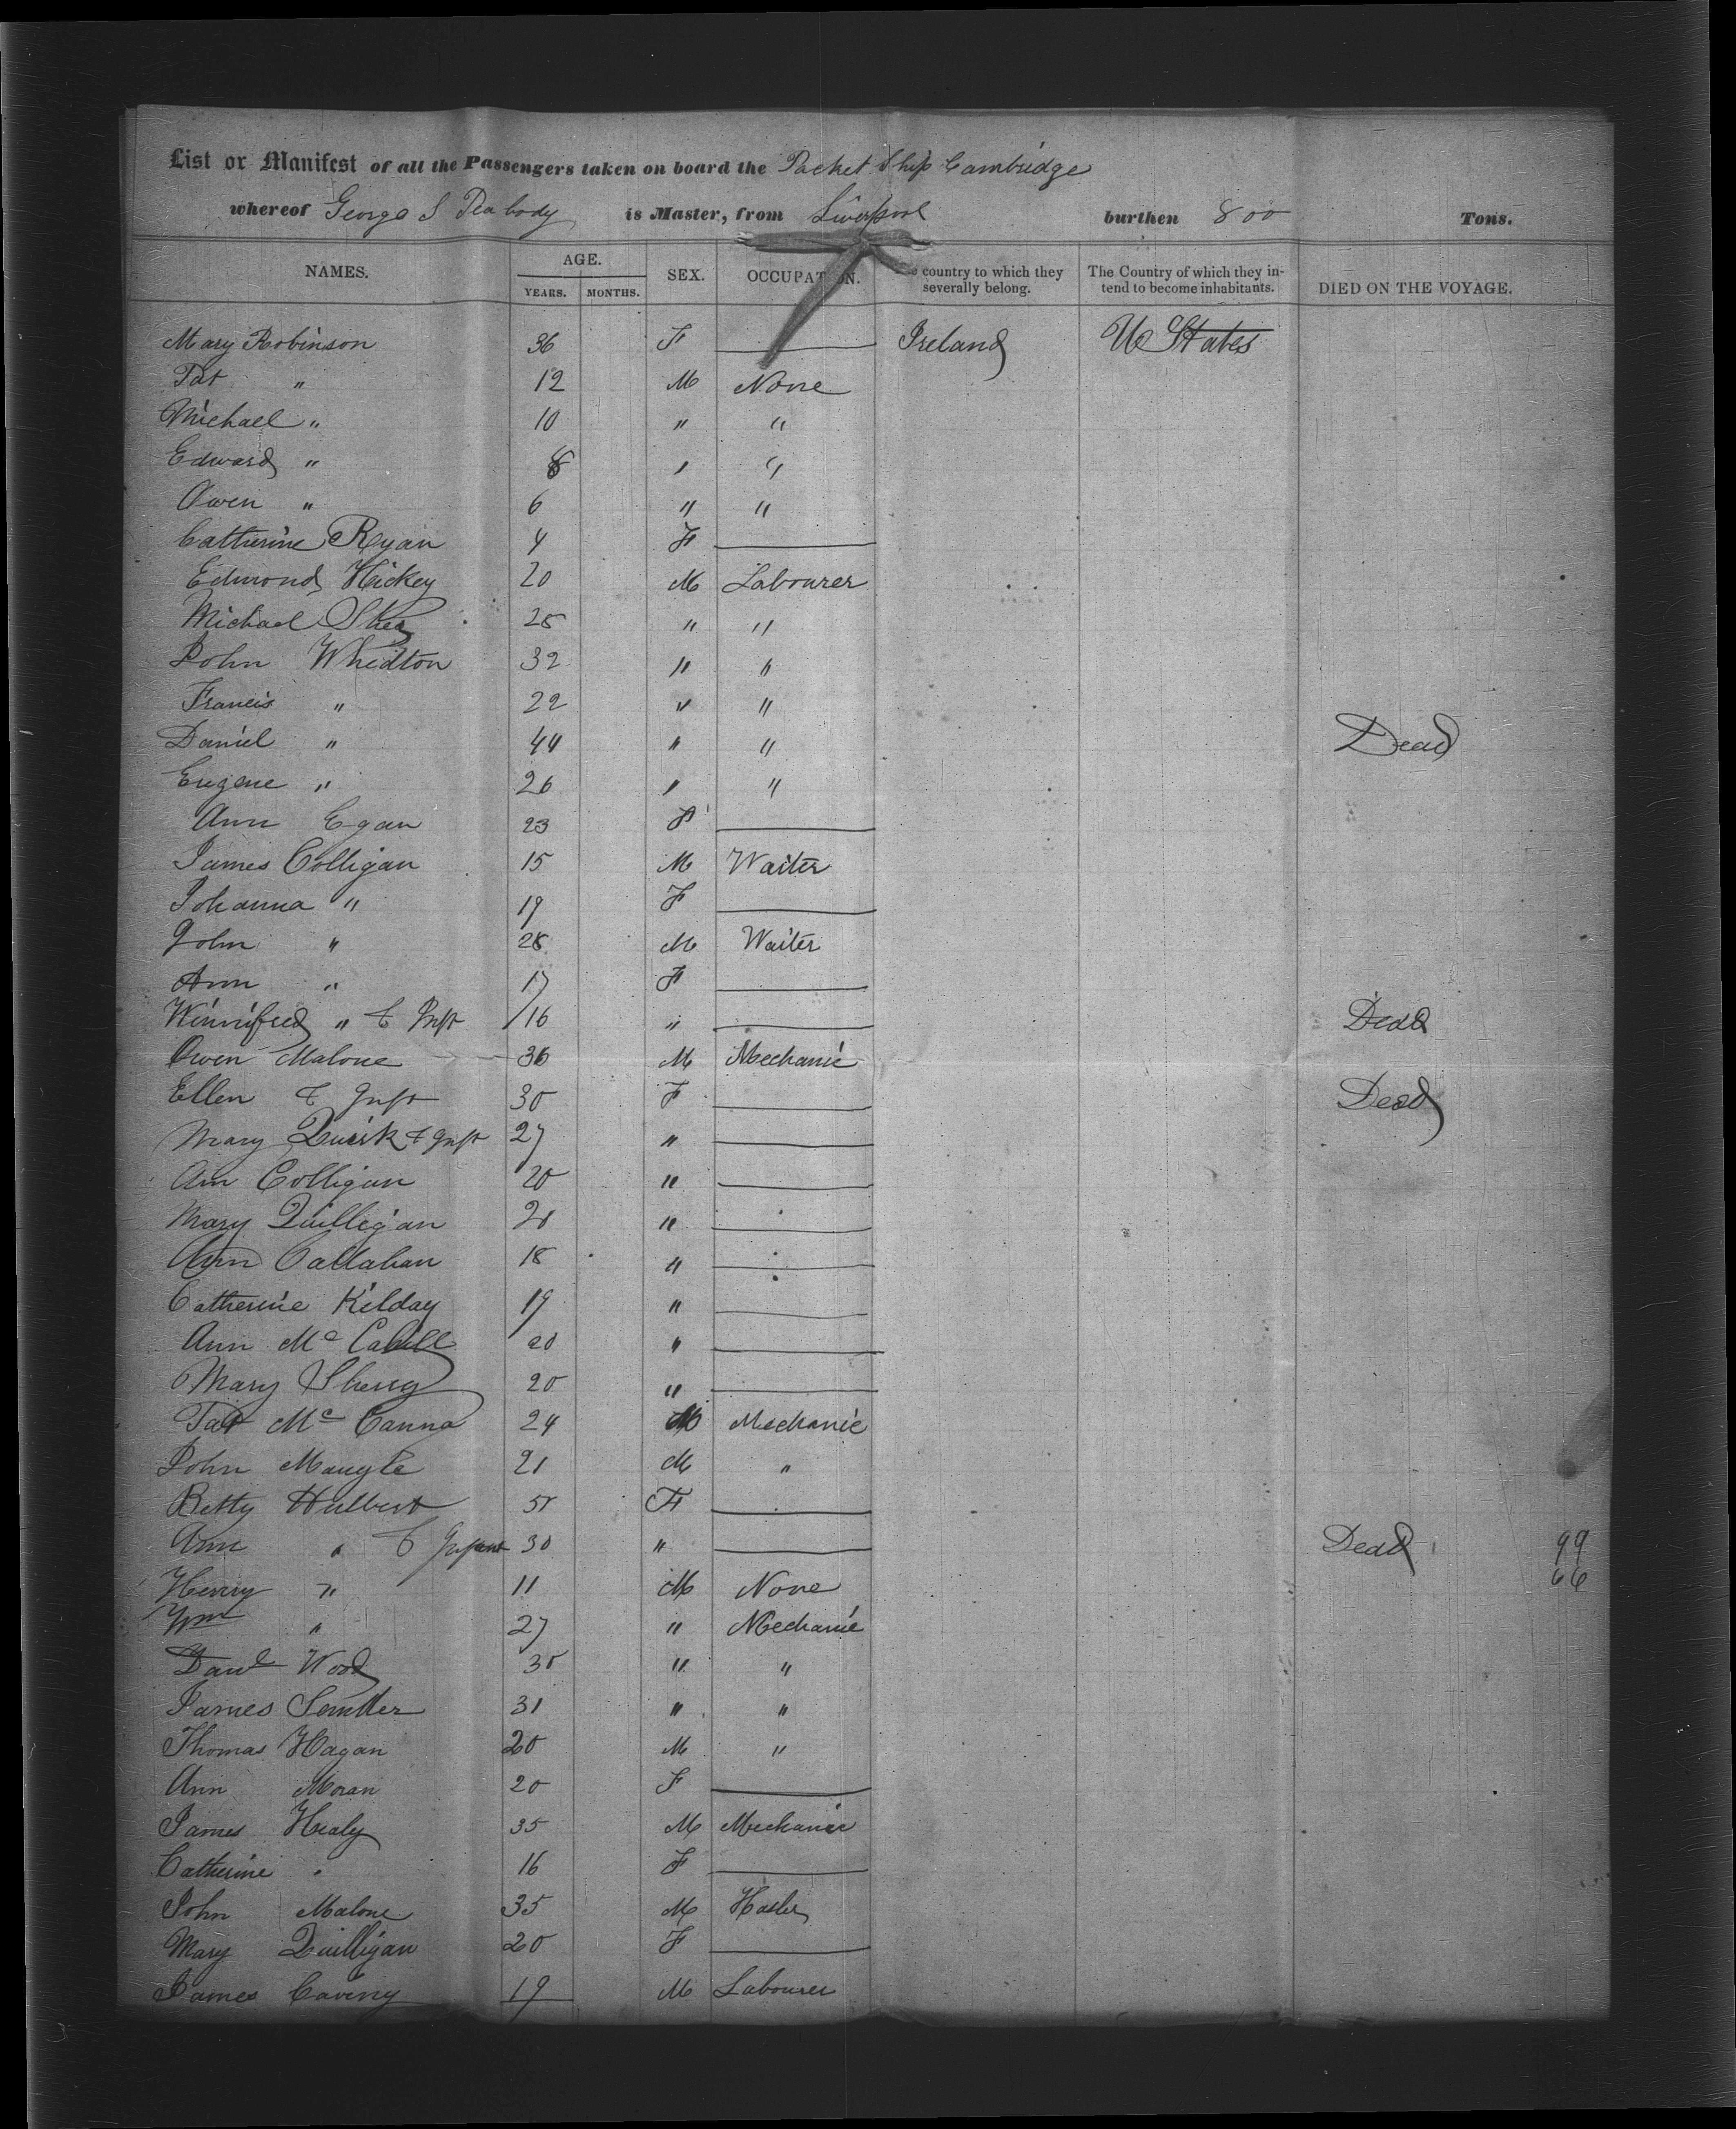 List or Manifest of all the Passengers taken on board the Packet Ship Cambridge
whereof George S Peabody is Master, from Liverpool burthen 800 Tons.
NAMES. AGE. SEX. OCCUPATION. country to which they severally belong. The Country of which they intend to become inhabitants. DIED ON THE VOYAGE.
YEARS. MONTHS.
Mary Robinson 36 F Ireland U States
Pat " 12 M None
Michael " 10 " "
Edward " 8 " "
Owen " 6 " "
Catherine Ryan 4 F
Edmond Hickey 20 M Labourer
Michael Shea 25 " "
John Whidton 32 " "
Francis " 22 " "
Daniel " 44 " " Dead
Eugene " 26 " "
Ann Egan 23 F
James Colligan 15 M Waiter
Johanna " 19 F
John " 28 M Waiter
Ann " 17 F
Winnifred " & Inft 16 " Dead
Owen Malone 36 M Mechanic
Ellen & Inft 30 F Dead
Mary Quirk & Inft 27 "
Ann Colligan 20 "
Mary Quilligan 20 "
Ann Callahan 18 "
Catherine Kilday 19 "
Ann Mc Cahill 20 "
Mary Sherry 20 "
Pat Mc Canna 24 M Mechanic
John Mangle 21 M "
Betty Hulbert 51 F
Ann " & Infant 30 " Dead 99
Henry " 11 M None 66
Wm " 27 " Mechanic
Danl Wood 30 " "
James 31 " "
Thomas Hagan 20 M "
Ann Moran 20 F
James Healy 35 M Mechanic
Catherine " 16 F
John Malone 35 M
Mary Quilligan 20 F
James Caveny 19 M Labourer